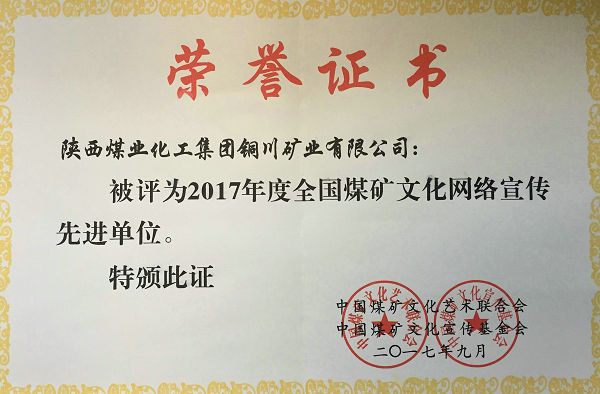 荣誉证书
陕西煤业化工集团铜川矿业有限公司：
被评为2017年度全国煤矿文化网络宣传
先进单位。
特颁此证
中国煤矿文化艺术联合会
中国煤矿文化宣传基金会
二〇一七年九月